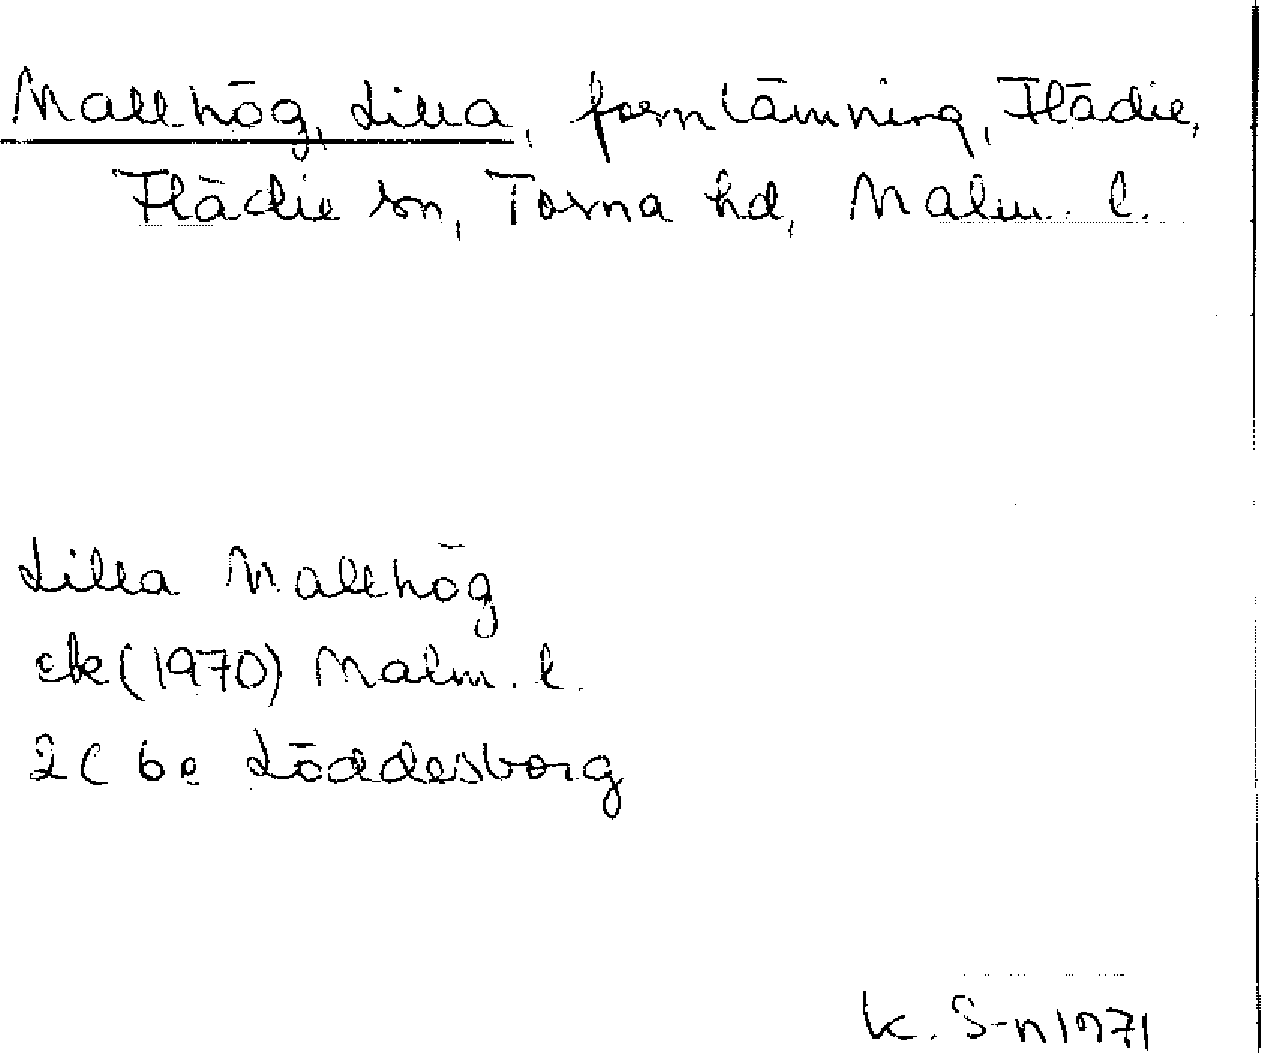 Mallhög, Lilla, fornlämning, Flädie,
Flädie sn, Torna hd, Malm. l.
Lilla Mallhög
ek (1970) Malm. l.
2C 6e Löddesborg
K. S-n 1971